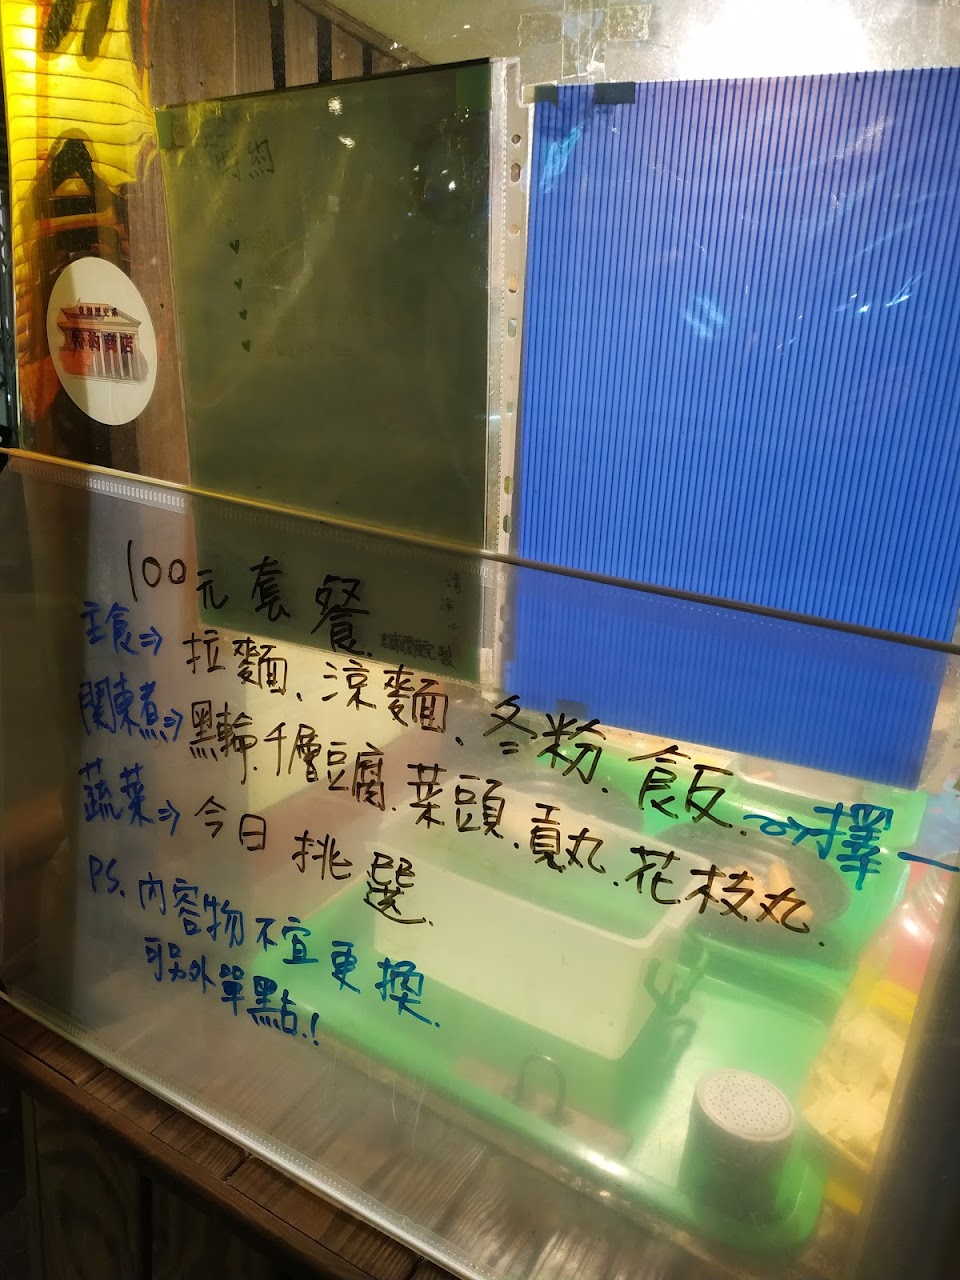 東海歷史系
特約商店
特約
100元套餐
主食⇒拉麵、涼麵、冬粉、飯.⇒擇一
関東煮⇒黑輪.千層豆腐.菜頭.貢丸.花枝丸.
蔬菜⇒今日挑選.
PS.內容物不宜更換.
可另外單點.!